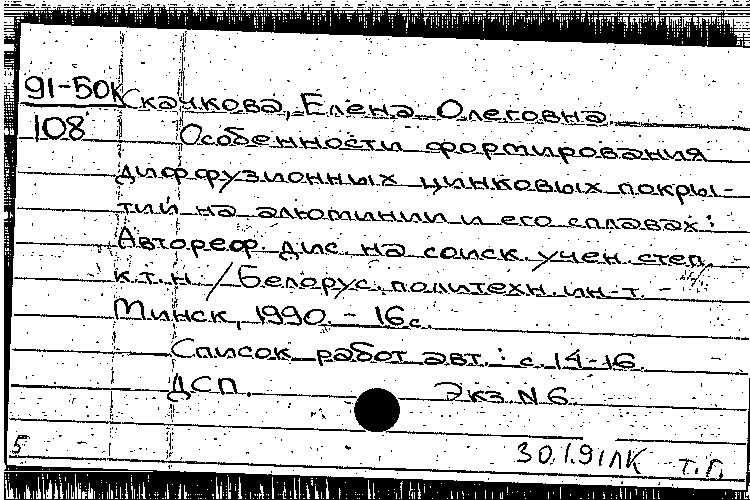 91-50К
108
Скачкова, Елена Олеговна.
Особенности формирования
диффузионных цинковых покры-
тий на алюминии и его сплавах:
Автореф. дис. на соиск. учен. степ.
к.т.н. / Белорус. политехн. ин-т. -
Минск, 1990. - 16 с.
Список работ авт.: с. 14-16.
ДСП. Экз. N 6.
5 30.1.91 ЛК т. Г.